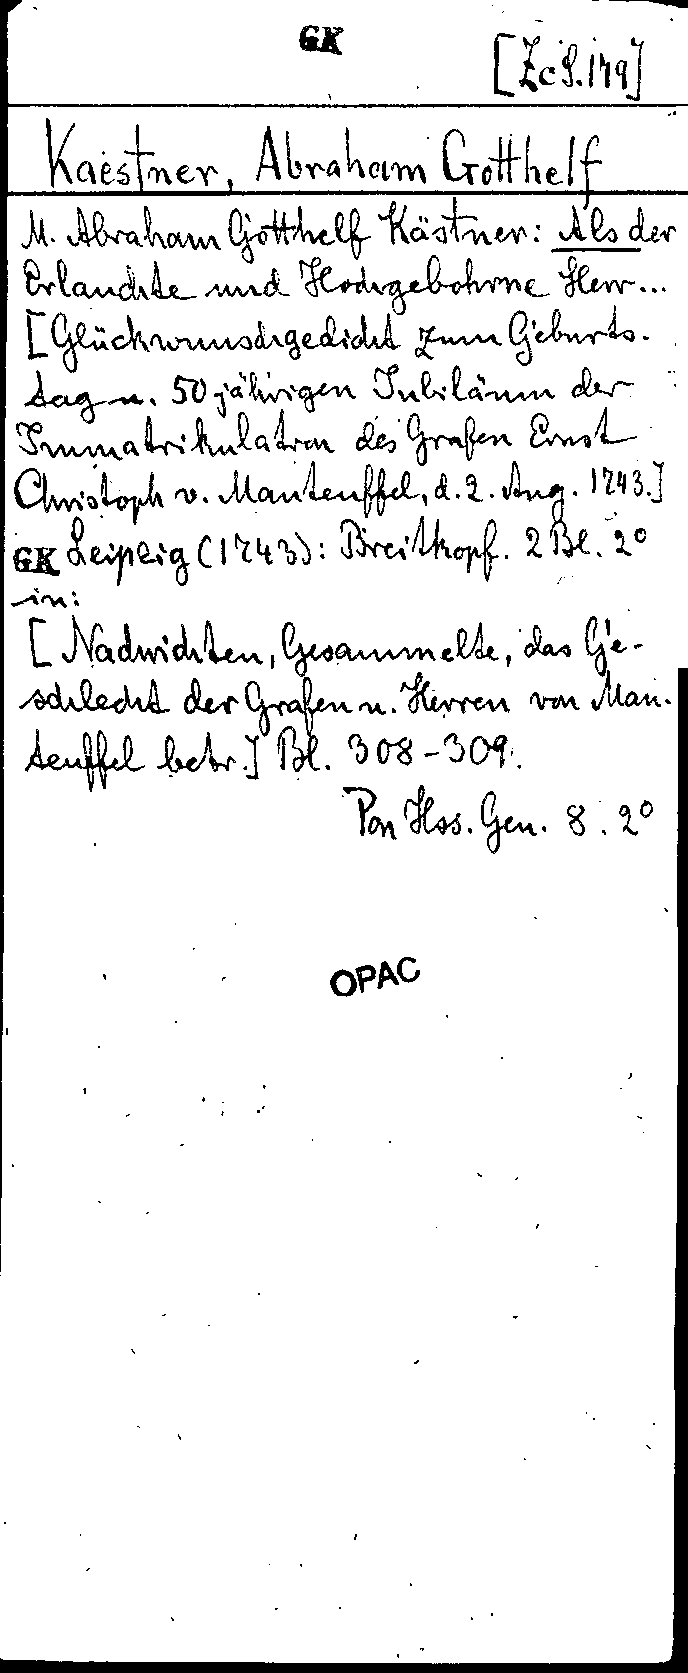 GK
[Zc S. 149]
Kaestner, Abraham Gotthelf
M. Abraham Gotthelf Kästner: Als der
Erlauchte und Hochgebohrne Herr...
[Glückwunschgedicht zum Geburts-
tag u. 50jährigen Jubiläum der
Immatrikulation des Grafen Ernst
Christoph v. Manteuffel, d. 2. Aug. 1743.]
GK Leipzig (1743): Breitkopf. 2 Bl. 2°
in:
[Nachrichten, Gesammelte, das Ge-
schlecht der Grafen u. Herren von Man-
teuffel betr.] Bl. 308-309.
Pon Hss. Gen. 8. 2°
OPAC